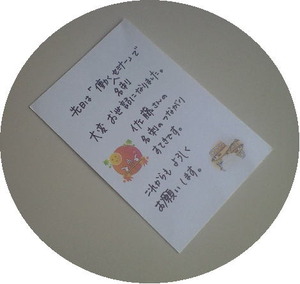 先日は「働く名刺セミナー」で
大変お世話になりました。
佐藤さんの
名刺のつながり
すてきです。
これからもよろしく
お願いします。